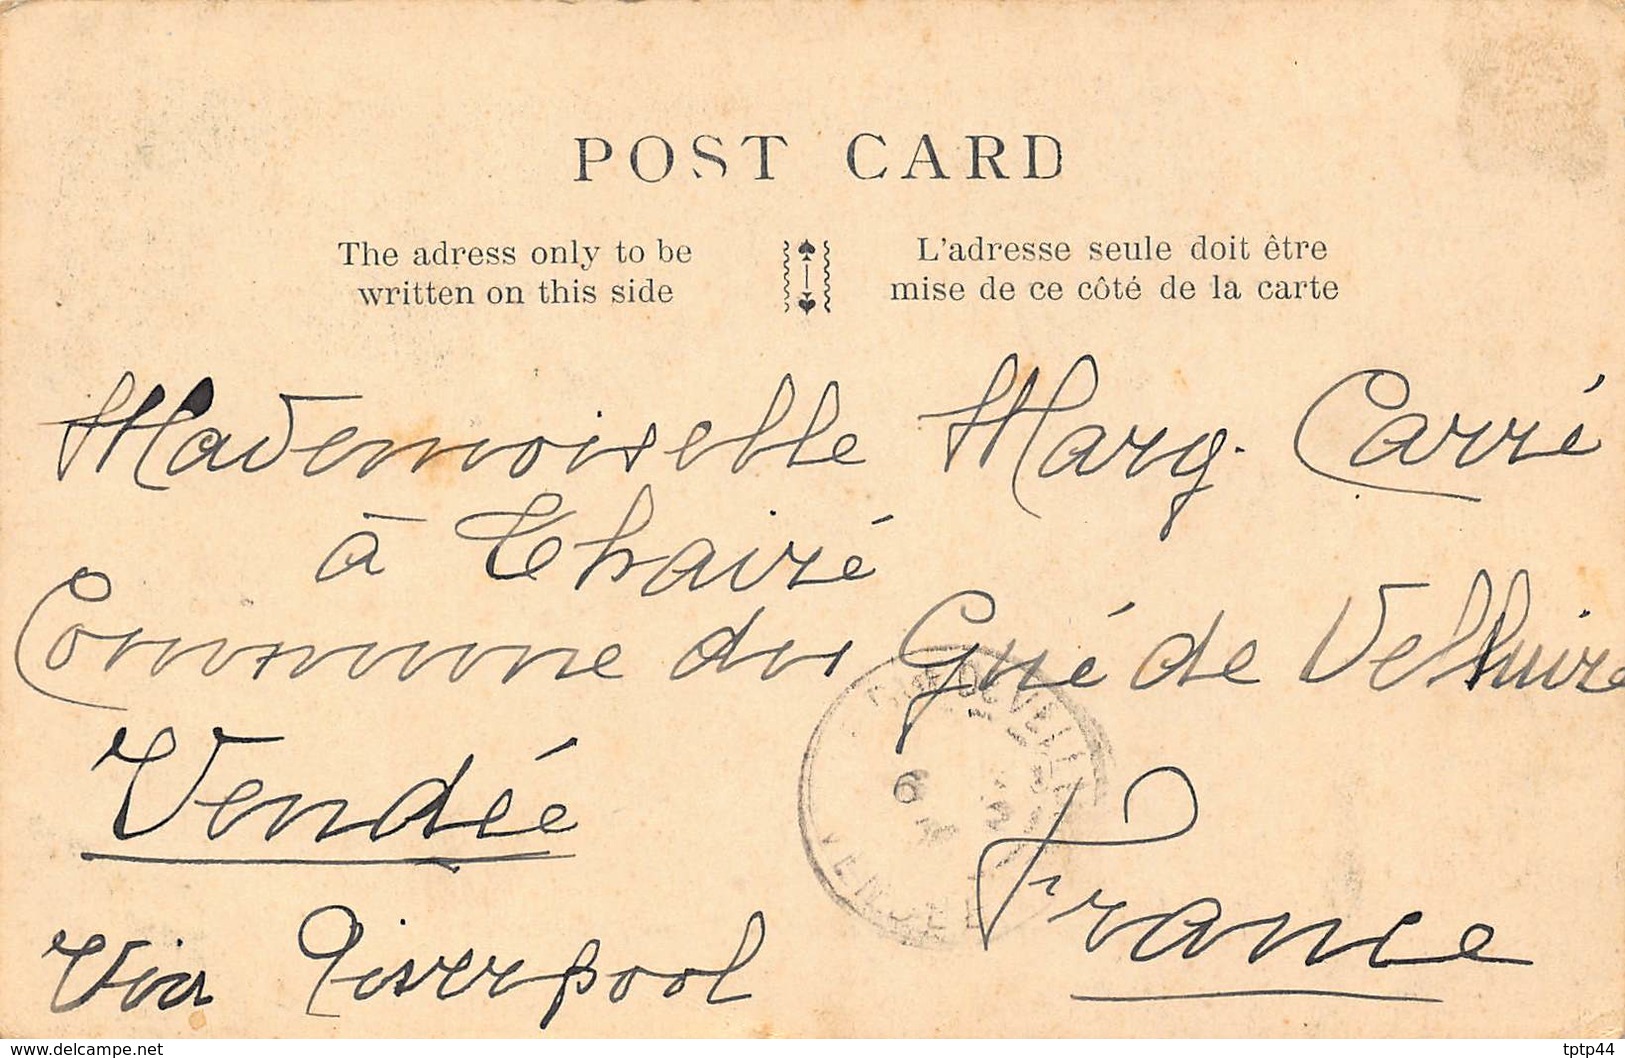 POST CARD
The adress only to be
written on this side
L'adresse seule doit être
mise de ce côté de la carte
Mademoiselle Marg. Carré
à Thairé
Commune du Gué de Velluire
Vendée
France
Via Liverpool
VENDÉE
6
www.delcampe.net
tptp44